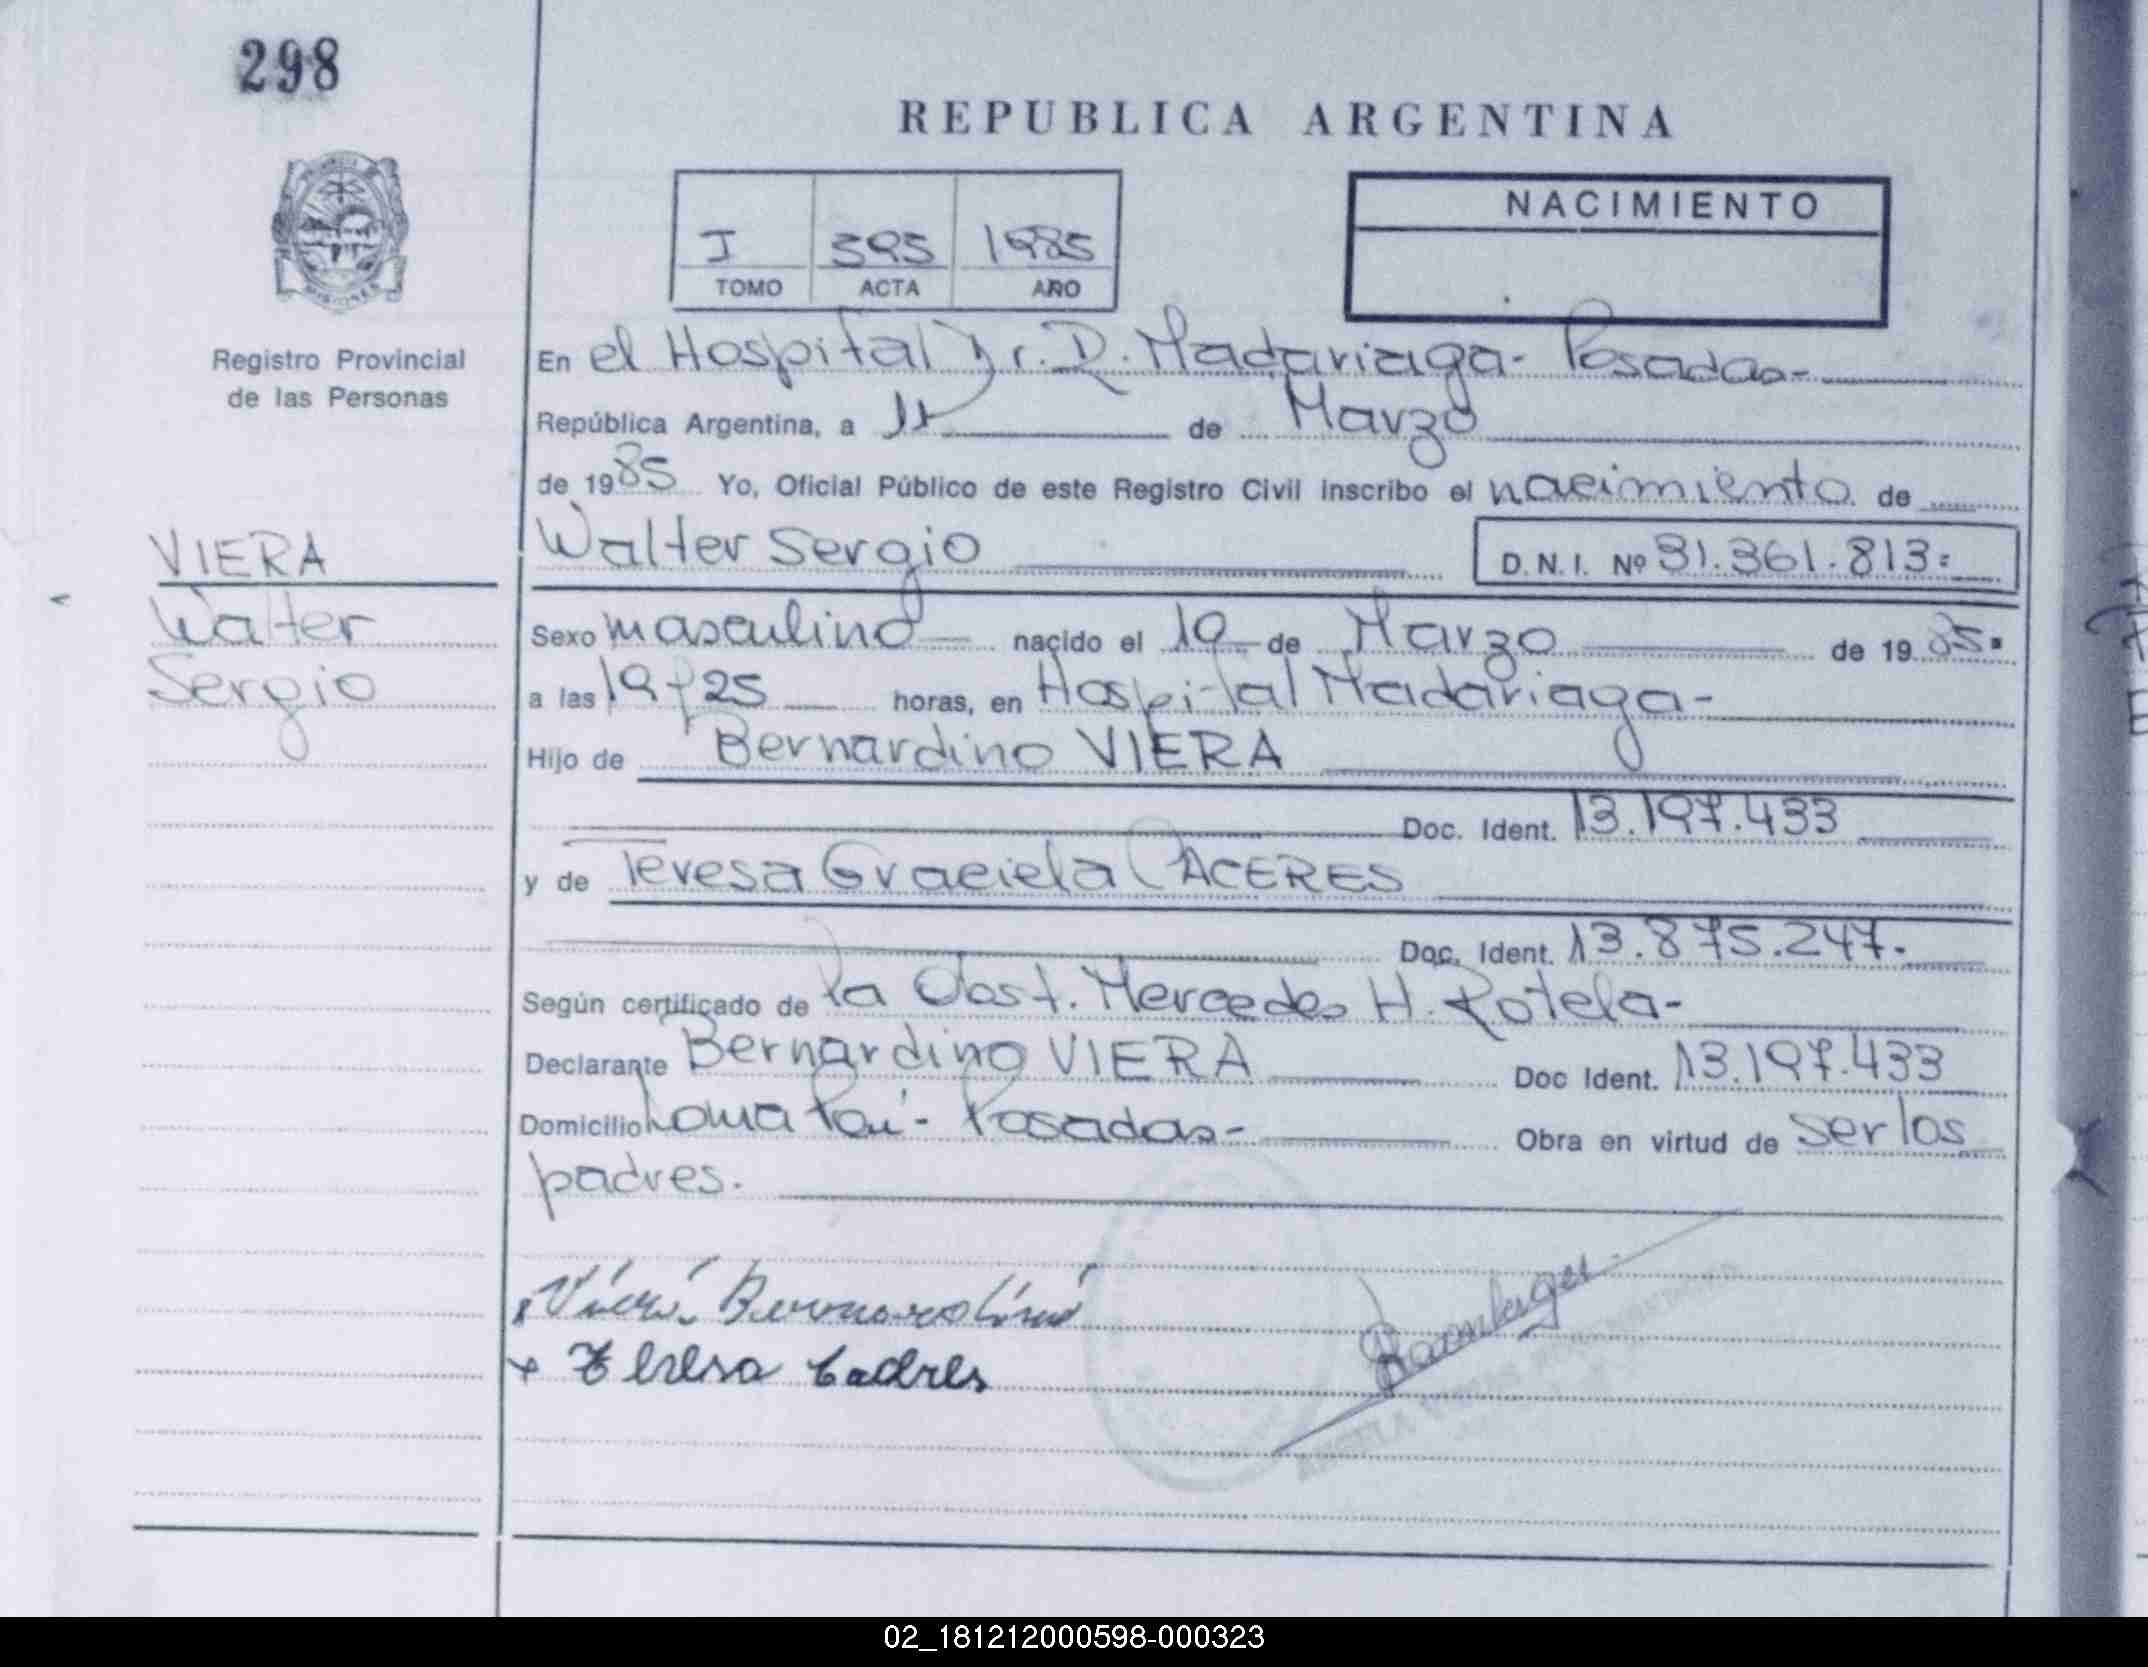 298
REPUBLICA ARGENTINA
NACIMIENTO
I 595 1985
TOMO ACTA AÑO
MISIONES
Registro Provincial
de las Personas
En el Hospital Dr. R. Madariaga - Posadas -
República Argentina, a 11 de Marzo
de 1985 Yo, Oficial Público de este Registro Civil inscribo el nacimiento de
VIERA
Walter
Sergio
Walter Sergio
D.N.I. Nº 31.361.813=
Sexo masculino nacido el 10 de Marzo de 1985.
a las 19 y 25 horas, en Hospital Madariaga -
Hijo de Bernardino VIERA
Doc. Ident. 13.197.433
y de Teresa Graciela CACERES
Doc. Ident. 13.875.247.
Según certificado de la Obst. Mercedes H. Rotela -
Declarante Bernardino VIERA Doc Ident. 13.197.433
Domicilio Loma Poi - Posadas - Obra en virtud de ser los
padres.
Viera Bernardino
x Teresa Caceres
02_181212000598-000323